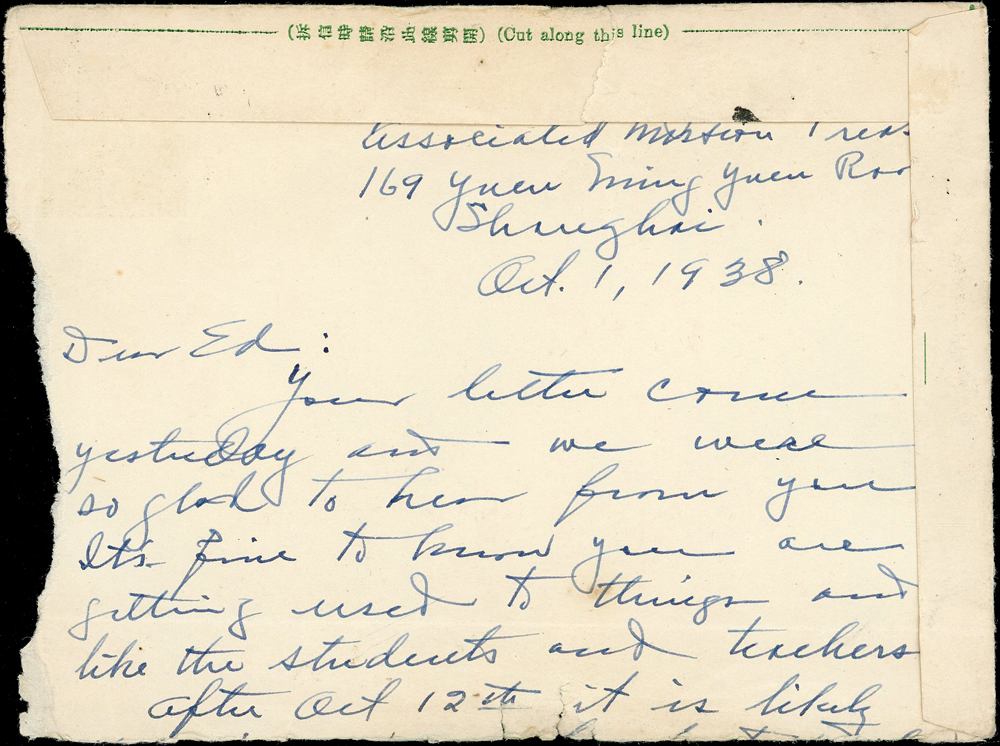 (拆信時請沿此線剪開) (Cut along this line)
Associated Mission Treas
169 Yuen Ming Yuen Roa
Shanghai.
Oct. 1, 1938.
Dear Ed:
Your letter came
yesterday and we were
so glad to hear from you
It's fine to know you are
getting used to things and
like the students and teachers
After Oct 12th it is likely